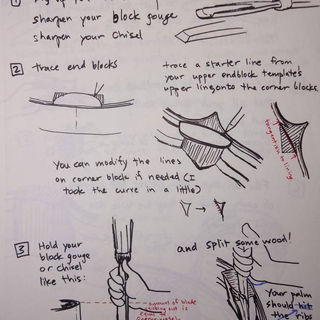 sharpen your block gouge
sharpen your chisel
2 trace end blocks
trace a starter line from
your upper endblock templates
upper lining onto the corner blocks.
You can modify the lines
on corner block if needed (I
took the curve in a little)
tangential to lining
3 Hold your
block gouge
or chisel
like this:
and split some wood!
amount of blade
sticking out is
Your palm
should hit
the ribs